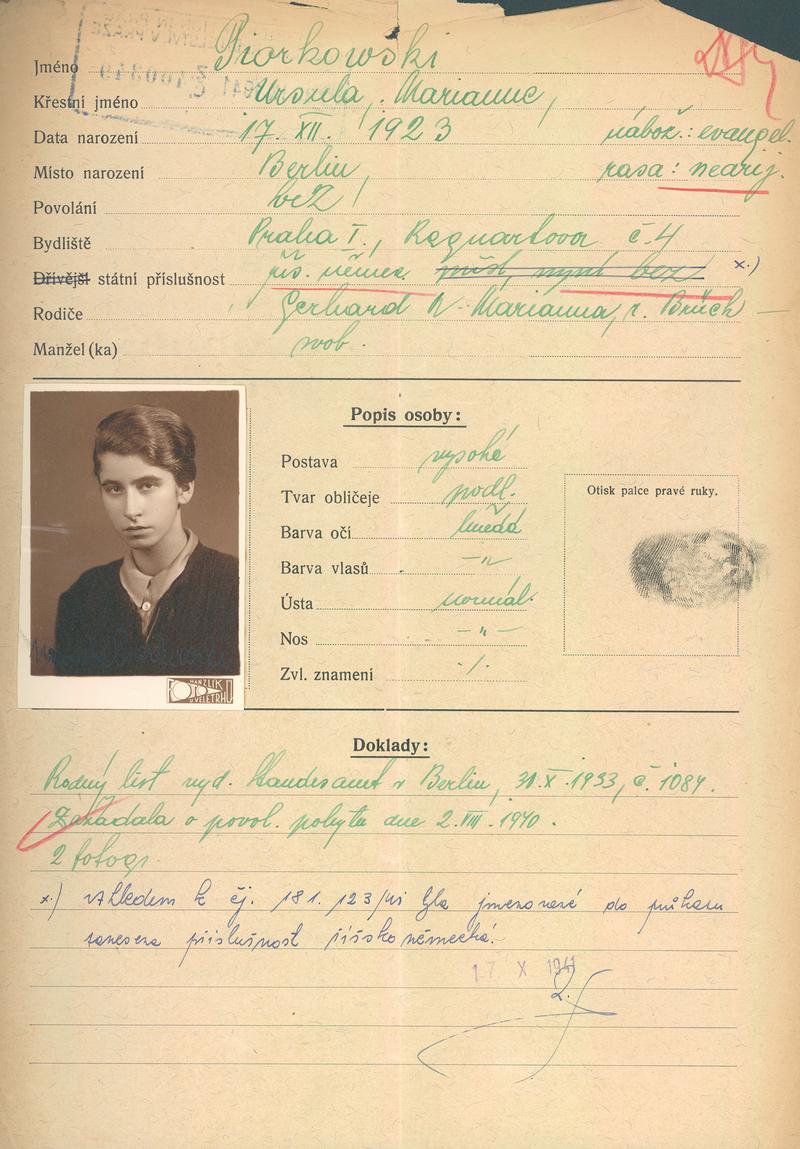 Jméno Piorkowski
Křestní jméno Ursula, Marianne,
Data narození 17. XII. 1923 nábož.: evangel.
Místo narození Berlin, rasa: nearij.
Povolání bez!
Bydliště Praha I., č. 4
Dřívější státní příslušnost říš. němec. nyní bez x.)
Rodiče Gerhard a Marianna, r. Brüch
Manžel (ka) svob.
Popis osoby:
Postava vysoká
Tvar obličeje podl.
Barva očí hnědá
Barva vlasů –"–
Ústa normál.
Nos –"–
Zvl. znamení ./.
Otisk palce pravé ruky.
MANZLIK
U VELETRHU
Doklady:
Rodný list vyd. Standesamt v Berlin, 31.X.1933, č. 1084.
Zažádala o povol. pobytu dne 2.VIII.1940.
2 fotogr.
x.) vzhledem k čj. 181.123/41 byla jmenované do průkazu
zanesena příslušnost říšsko německá.
17 X 1941